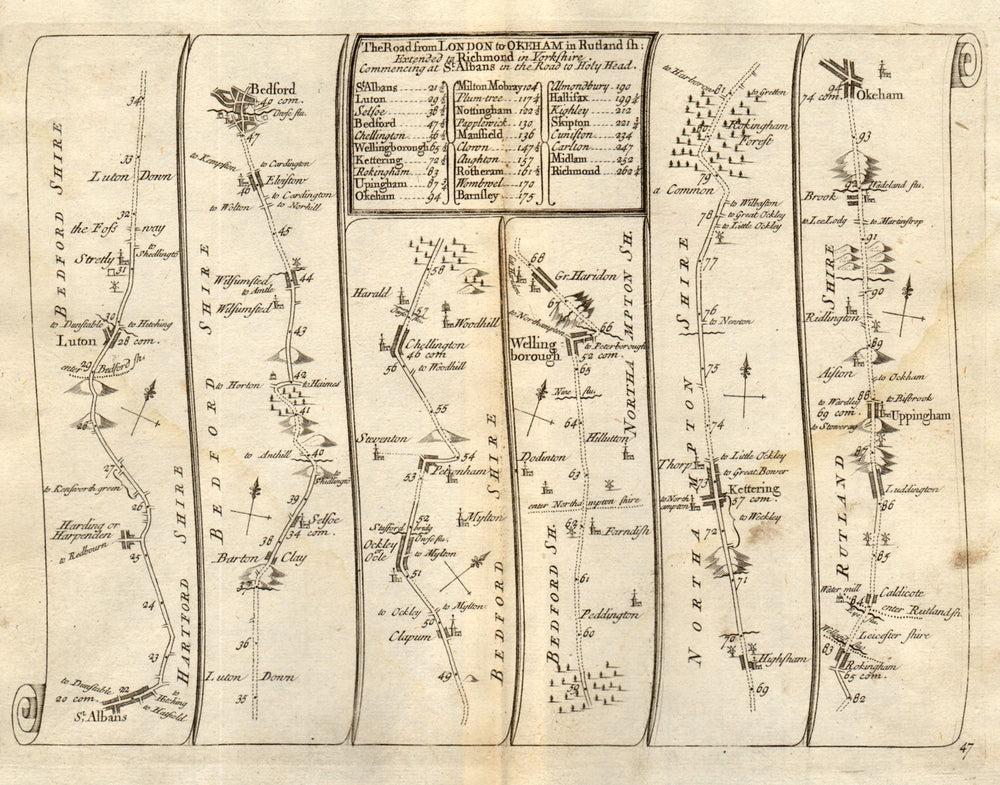 The Road from LONDON to OKEHAM in Rutland sh:
Extended to Richmond in Yorkshire
Commencing at St. Albans in the Road to Holy Head.
St. Albans 21½
Luton 29
Selfoe 38
Bedford 47
Chellington 56
Wellingborough 65
Kettering 72
Rokingham 83
Upingham 87
Okeham 94
Milton Mobray 104
Plum-tree 117
Nottingham 122
Papplewick 130
Mansfield 136
Clown 147
Aughton 157
Rotheram 161
Wombwel 170
Barnsley 175
Almondbury 190
Hallifax 199
Kighley 212
Skipton 221
Cuniston 234
Carlton 247
Midlam 252
Richmond 262
34
33
Luton Down
32
the Foss way
to Shedlington
Stretly
31
30
to Dunstable
to Hitching
Luton
28 com.
29
enter Bedford sh.
28
27
to Kensworth green
26
Harding or
Harpenden
to Redbourn
25
24
23
to Dunstable
22
20 com.
St. Albans
to Hitching
to Hatfield
BEDFORD SHIRE
HARTFORD SHIRE
Bedford
40 com.
Owse flu.
47
to Kempson
to Cardington
46
Elvistow
to Cardington
to Wolton
to Norhill
45
Wilsumsted
to Amtle
44
Wilsumsted
43
42
to Horton
to Haines
41
to Anthill
40
to Shillington
39
Selfoe
34 com.
38
Barton
Clay
37
36
Luton Down
35
BEDFORD SHIRE
58
Harald
57
Woodhill
Chellington
46 com.
to Woodhill
56
55
Steventon
54
Pebenham
53
52
Stafford bridg
Owse flu.
Mylton
Ockley
or
Ocle
to Mylton
51
to Ockley
to Mylton
50
Clapum
49
BEDFORD SHIRE
68
Gr. Haridon
67
66
to Northampton
Welling
borough
to Peterborough
52 com.
65
Nine flu.
64
Hillutton
Dodinton
63
enter Northampton shire
62
Farndish
61
Peddington
60
59
BEDFORD SH.
NORTHAMPTON SH.
to Harborow
81
to Gretton
80
Rokingham
Forest
79
a Common
to Wilbaston
78
to Great Ockley
to Little Ockley
77
76
to Newton
75
74
to Little Ockley
Thorp
to Great Bower
73
Kettering
57 com.
to Northampton
to Weekley
72
71
70
Highsham
69
NORTHAMPTON SHIRE
94
74 com.
Okeham
93
92
Wadeland flu.
Brook
to Lee Lody
to Martinstrop
91
90
Ridlington
89
Aiston
to Ockham
88
to Wardley
to Bisbrook
69 com.
Uppingham
to Stoweray
87
Luddington
86
85
Water mill
Caldicote
84
enter Rutland sh.
Leicester shire
83
Rokingham
65 com.
82
RUTLAND SHIRE
47